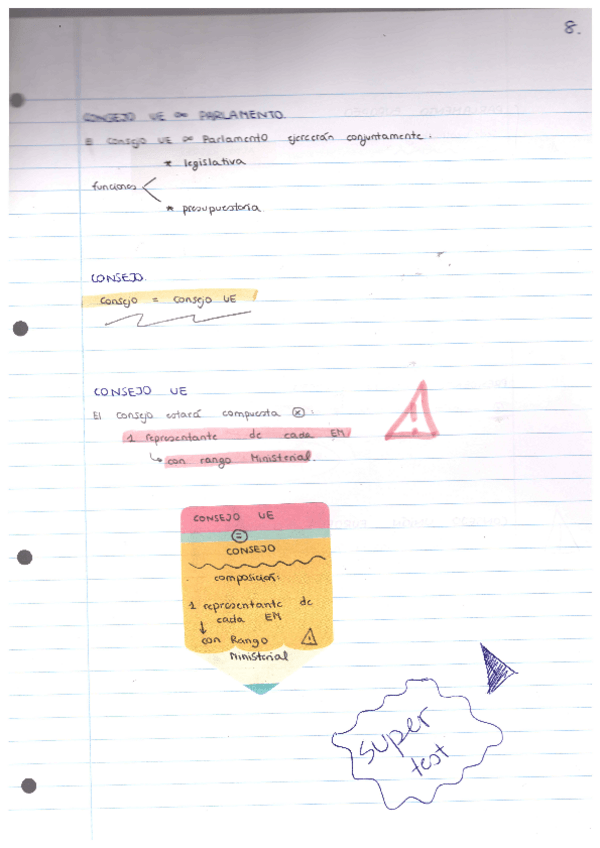 8.
CONSEJO UE ∞ PARLAMENTO.
El Consejo UE ∞ Parlamento ejercerán conjuntamente.
* legislativa
funciones <
* presupuestaria
CONSEJO.
Consejo = Consejo UE
CONSEJO UE
El Consejo estará compuesta ⓧ:
1 representante de cada EM
↳ con rango Ministerial.
CONSEJO UE
=
CONSEJO
composición:
1 representante de
cada EM
↓
con Rango
Ministerial
super
test